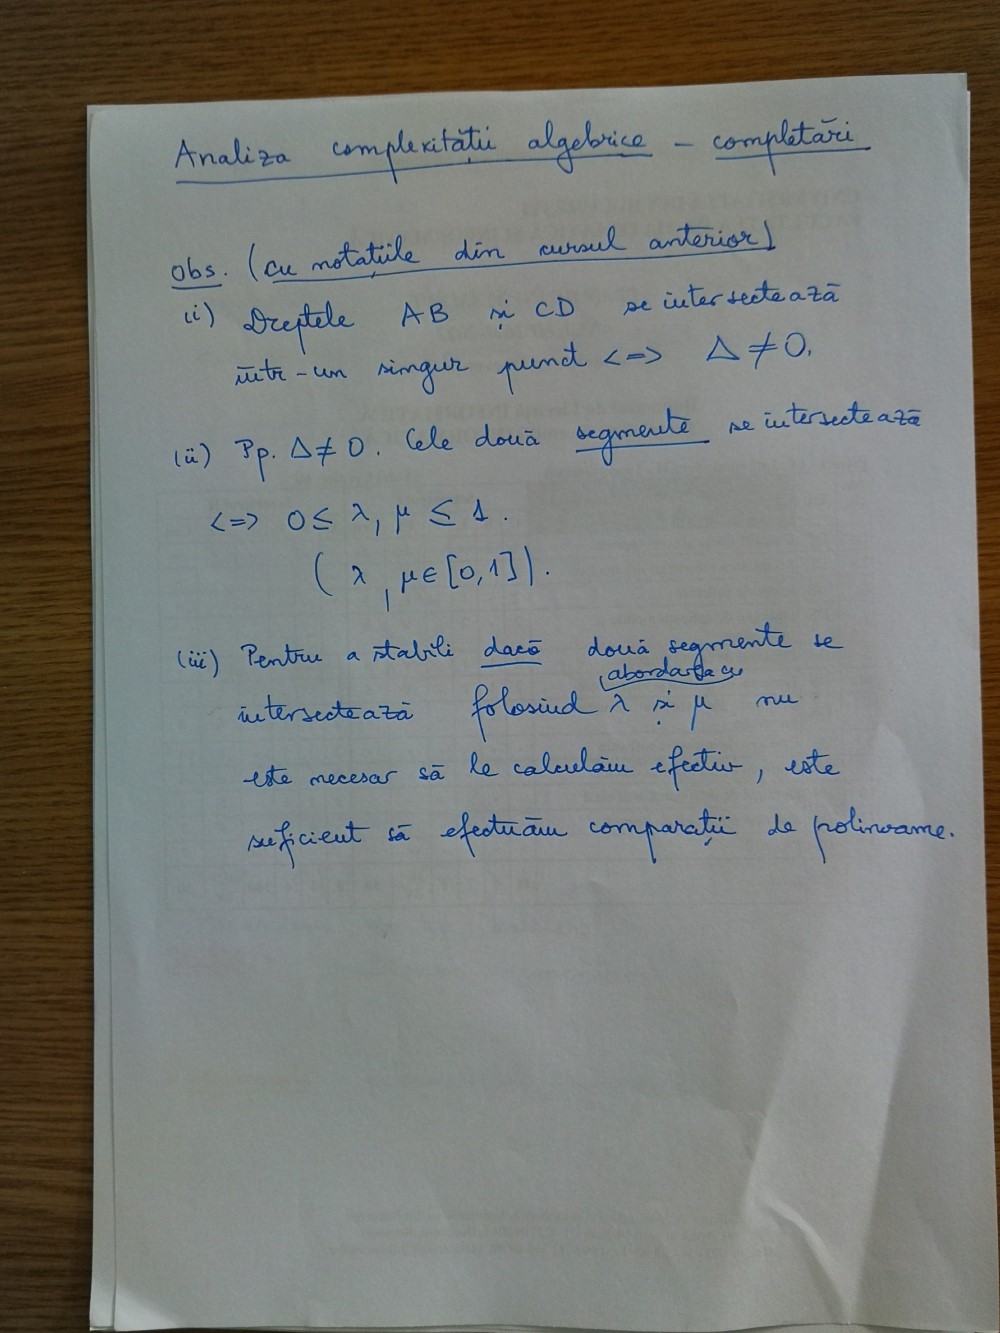 Analiza complexității algebrice - completări
Obs. (cu notațiile din cursul anterior)
(i) Dreptele AB și CD se intersectează
într-un singur punct <=> Δ ≠ 0.
(ii) Pp. Δ ≠ 0. Cele două segmente se intersectează
<=> 0 ≤ λ, μ ≤ 1.
( λ, μ ∈ [0,1] ).
(iii) Pentru a stabili dacă două segmente se
intersectează folosind (abordarea cu λ și μ nu
este necesar să le calculăm efectiv, este
suficient să efectuăm comparații de polinoame.